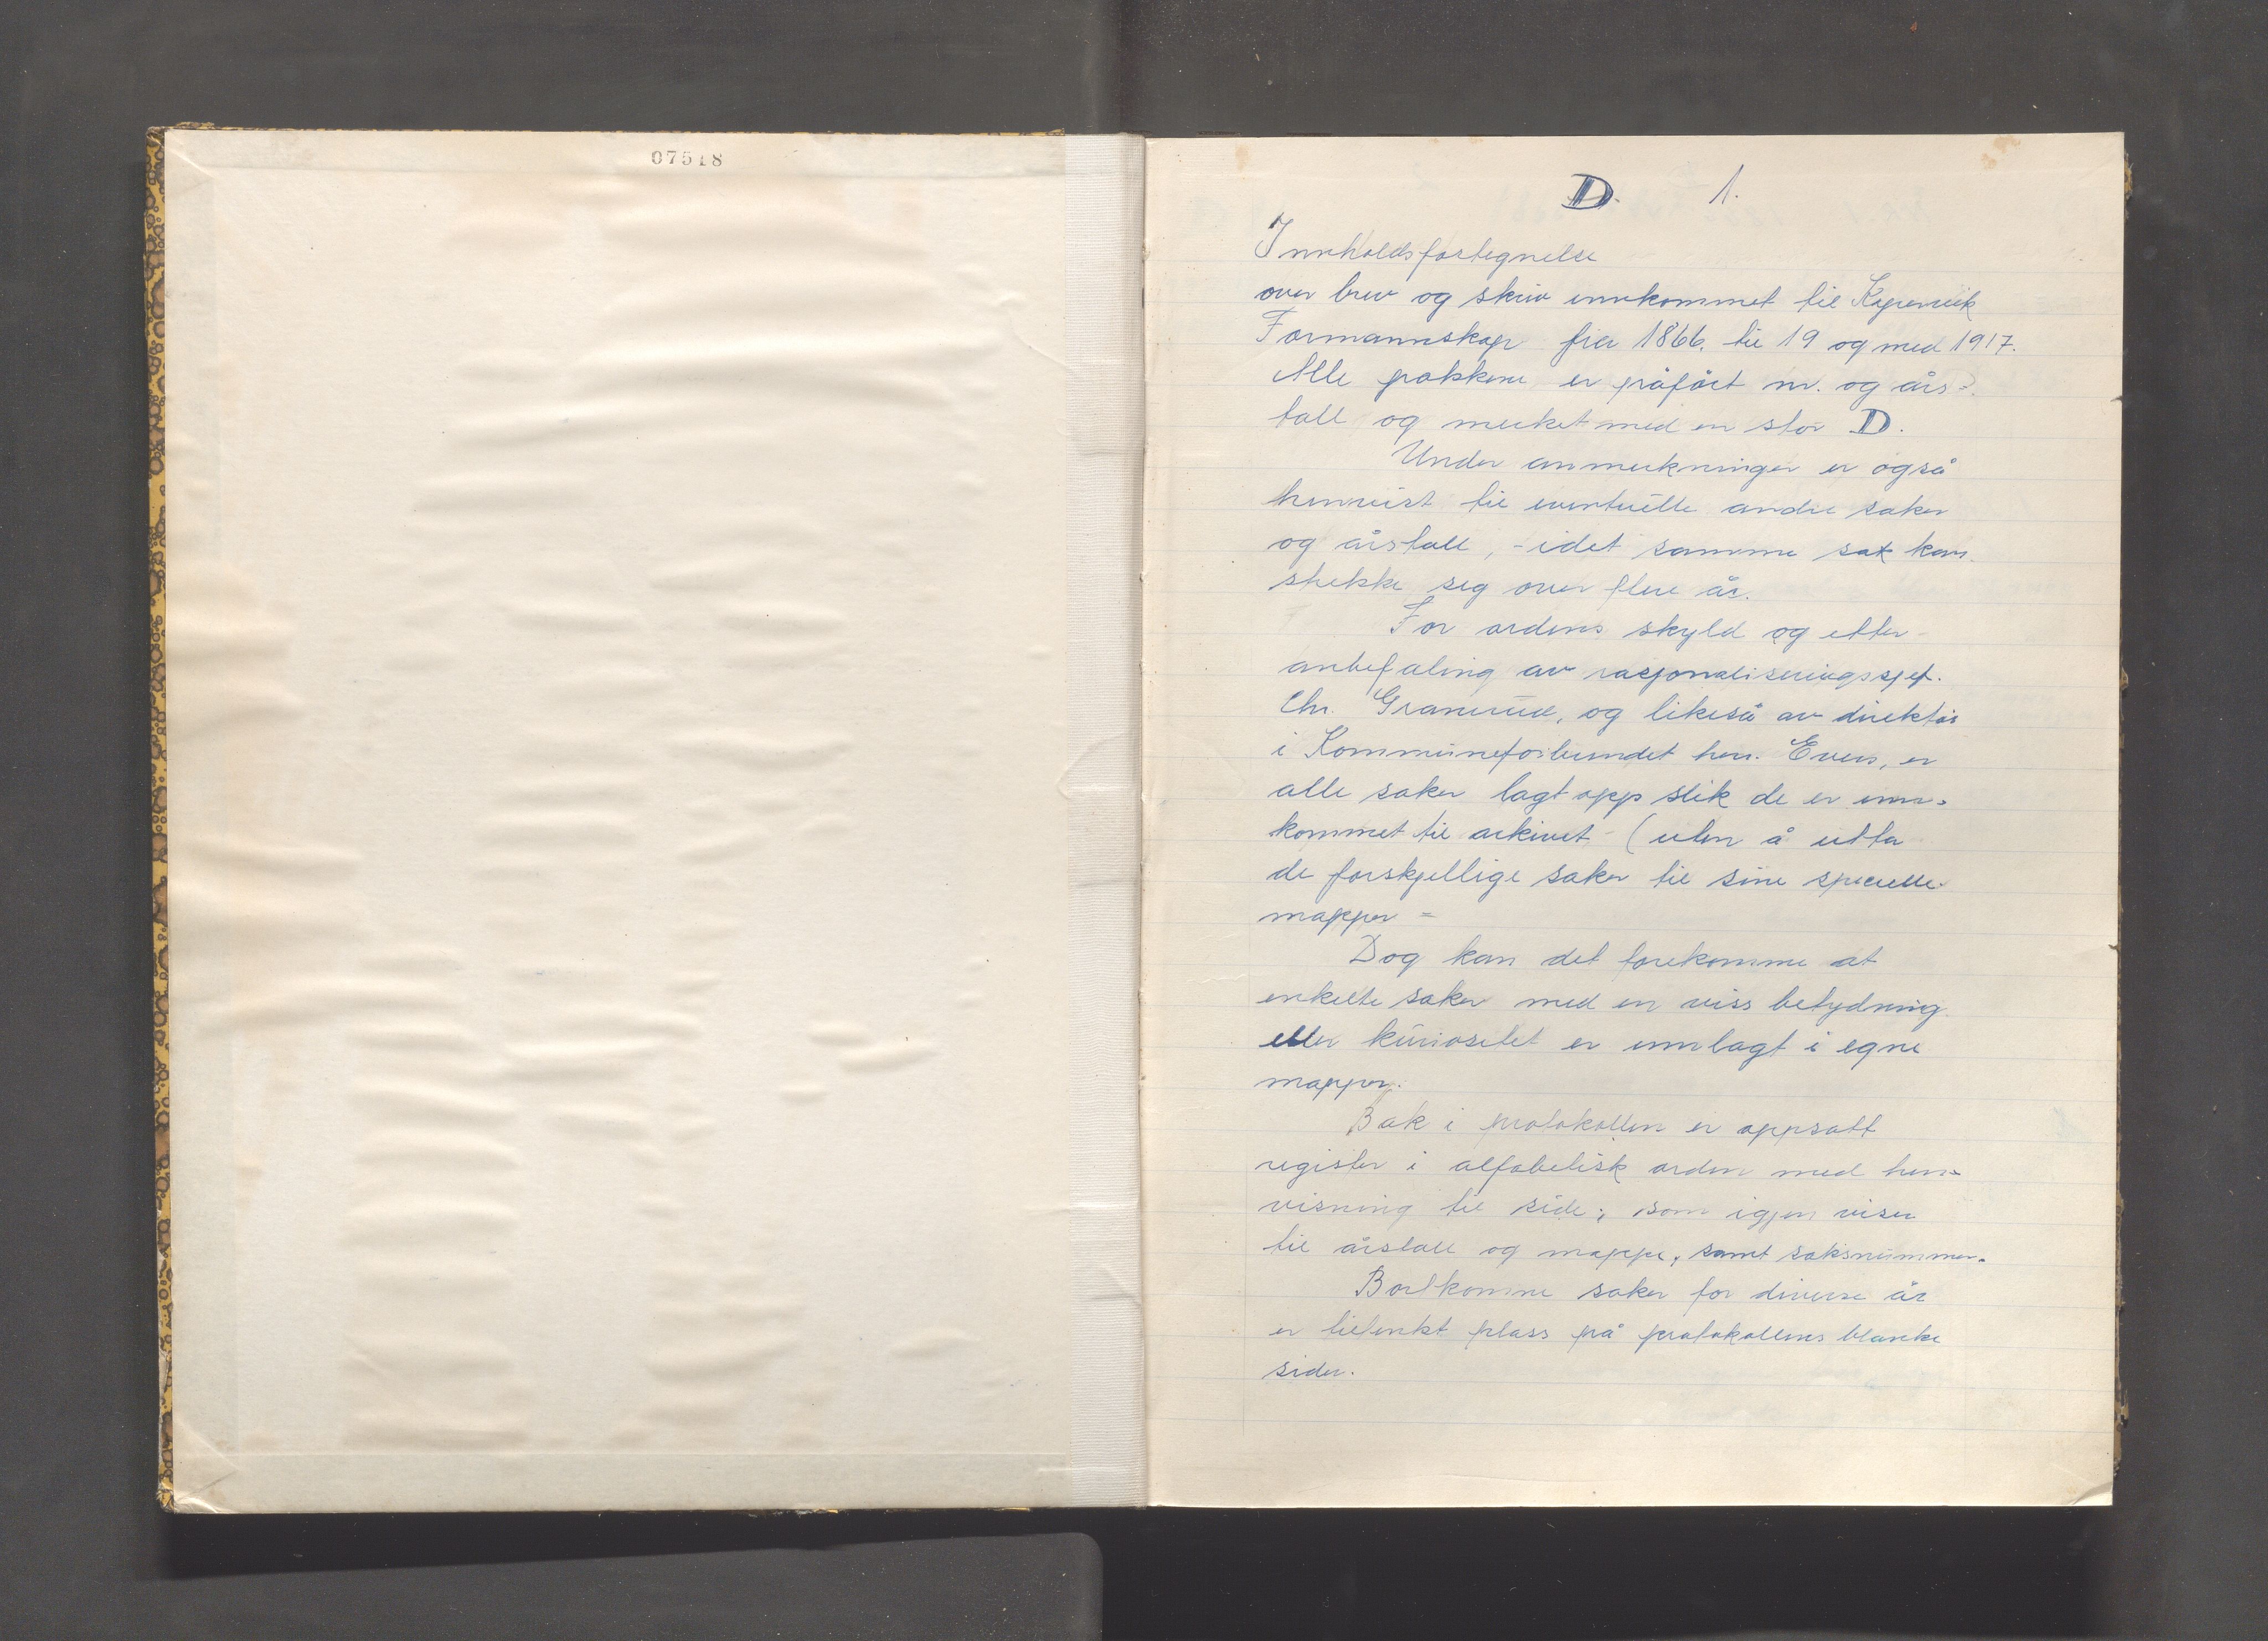 07518
D. 1.
Innholdsfortegnelse
over brev og skriv innkommet til Kopervik
Formannskap fra 1866. til 19 og med 1917.
Alle pakkene er påført nr. og års-
tall og merket med en stor D.
Under anmerkninger er også
henvist til eventuelle andre saker
og årstall, - idet samme sak kan
strekke seg over flere år.
For ordens skyld og etter
anbefaling av rasjonaliseringssjef.
Chr. Granerud, og likeså av direktør
i Kommuneforbundet herr. Evers, er
alle saker lagt opp slik de er inn-
kommet til arkivet (uten å utta
de forskjellige saker til sine spesielle
mapper -
Dog kan det forekomme at
enkelte saker med en viss betydning
eller kuriositet er innlagt i egne
mapper.
Bak i protokollen er oppsatt
register i alfabetisk orden med hen-
visning til side, som igjen viser
til årstall og mappe, samt saksnummer.
Bortkomne saker for diverse år
er tiltenkt plass på protokollens blanke
sider.